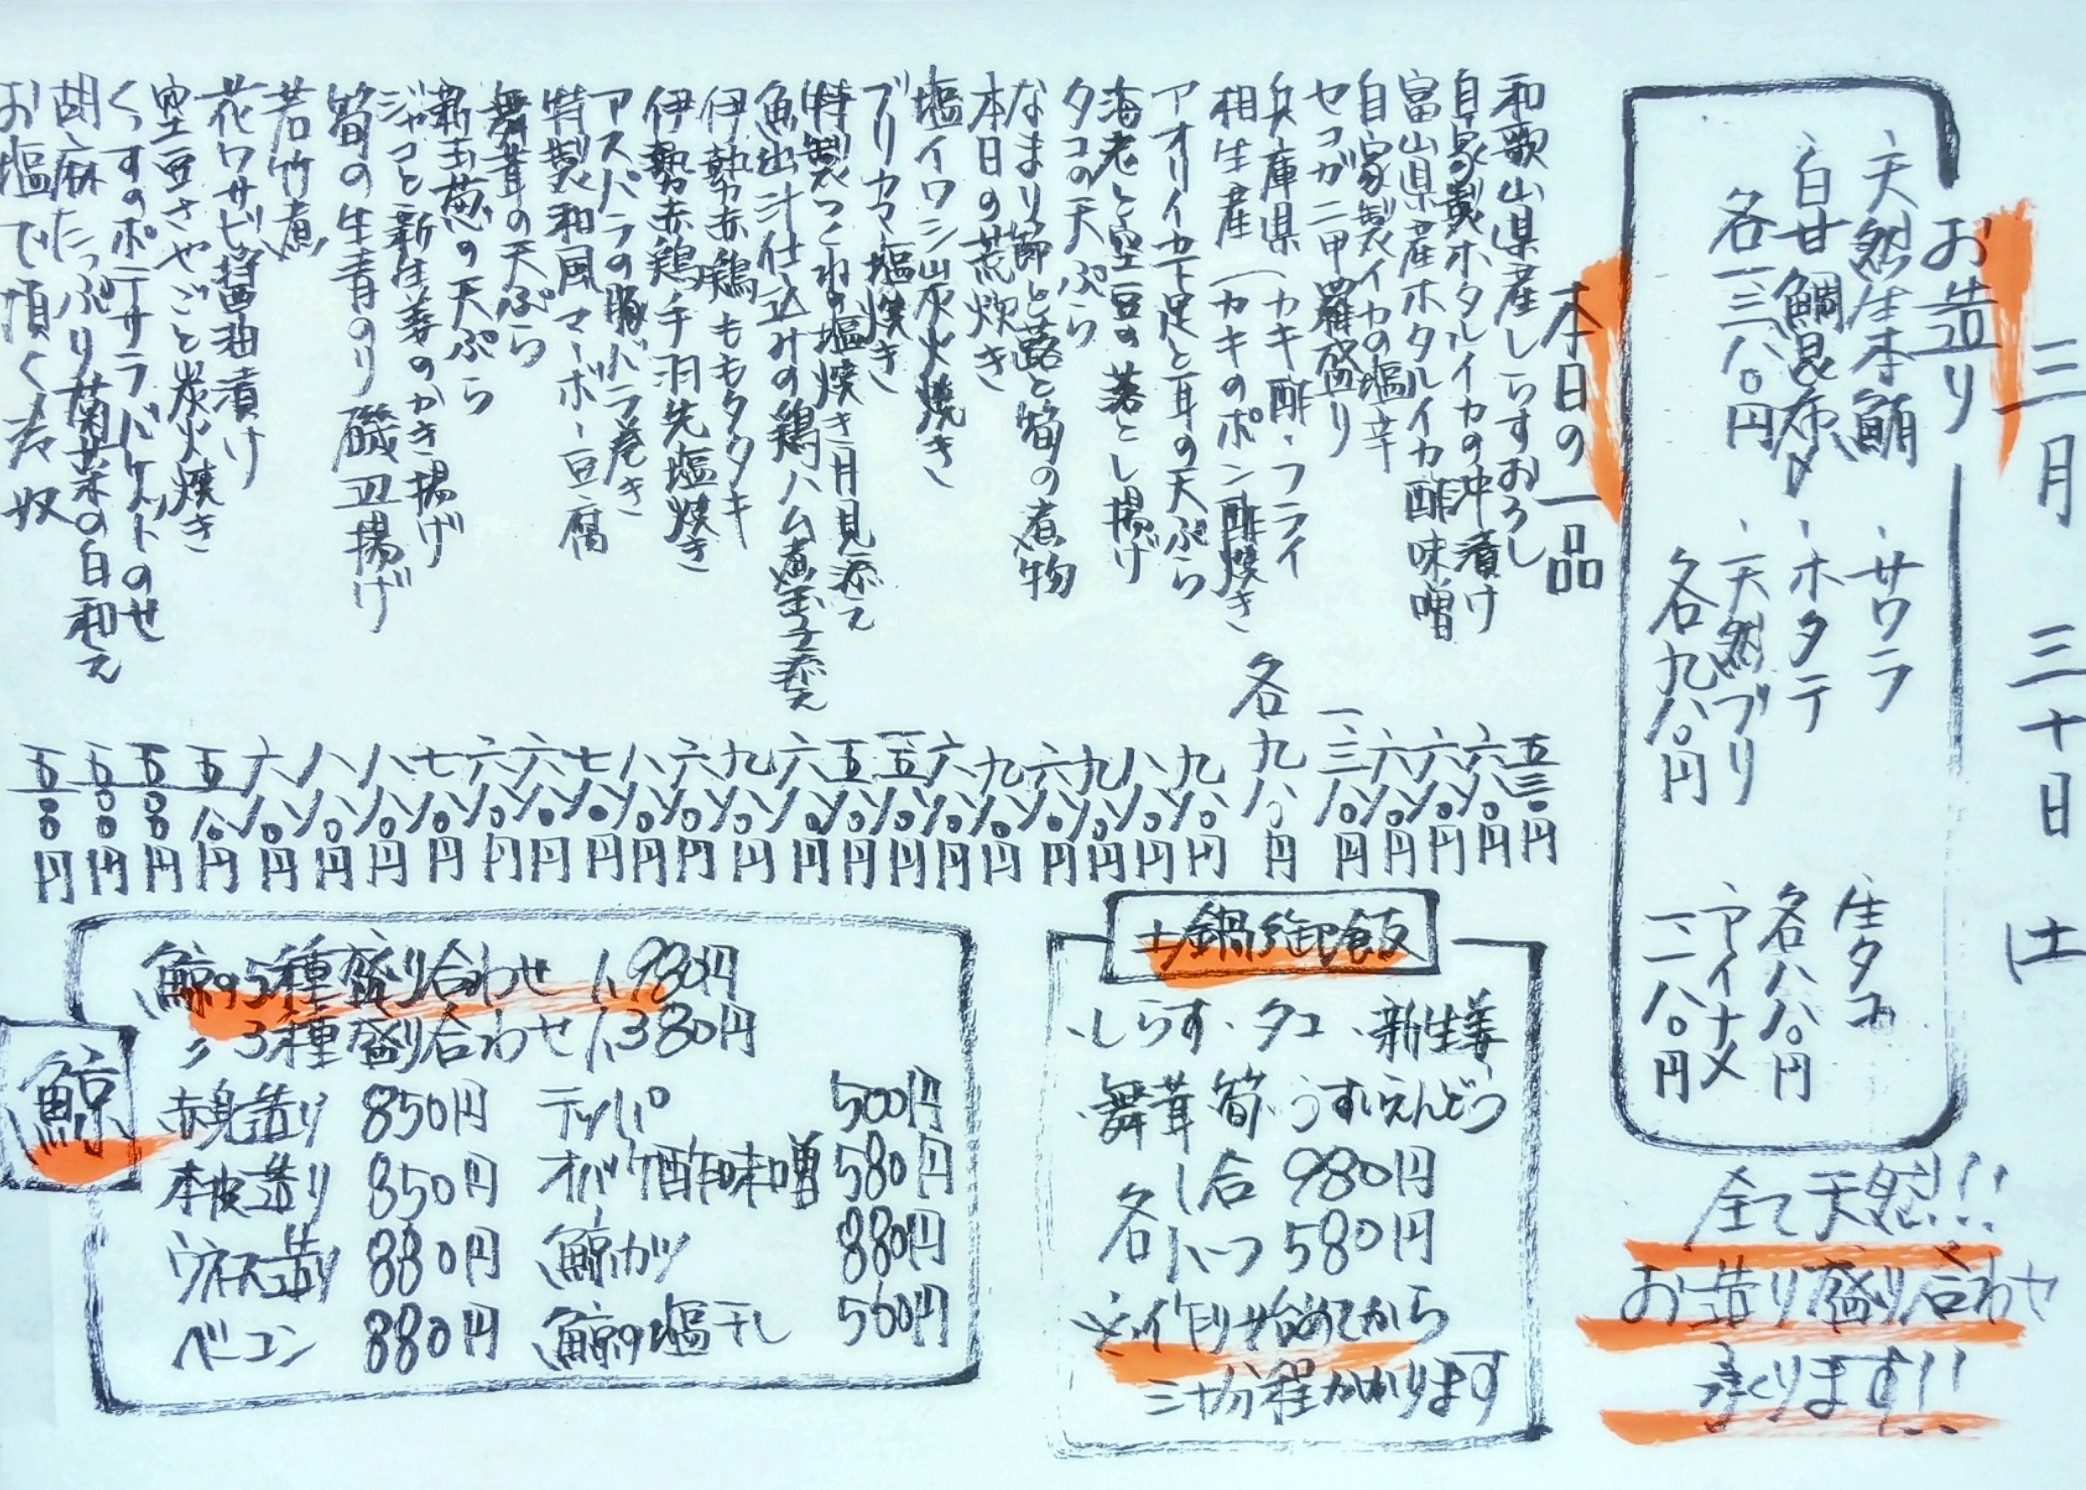 三月三十日(土
お造り
、天然生本鮪
、白甘鯛昆布〆
各一三八〇円
、サワラ
、ホタテ
、天然ブリ
各九八〇円
生タコ
各八八〇円
、アイナメ
一一八〇円
全て天然!!!
お造り盛り合わせ
承ります!!
本日の一品
和歌山県産しらすおろし 五三〇円
自家製ホタルイカの沖漬け 六八〇円
富山県産ホタルイカ酢味噌 六八〇円
自家製イカの塩辛 六八〇円
セコガニ甲羅盛り 一三八〇円
兵庫県
相生産
カキ酢・フライ
カキのポン酢焼き
各九八〇円
アオリイカ下足と耳の天ぷら 九八〇円
海老と空豆の落とし揚げ 八八〇円
タコの天ぷら 九八〇円
なまり節と蕗と筍の煮物 六八〇円
本日の荒炊き 九八〇円
塩イワシ炭火焼き 六八〇円
ブリカマ塩焼き
特製つくねの塩焼き月見添え 五八〇円
魚出汁仕込みの鶏ハム煮玉子添え 六八〇円
伊勢赤鶏ももタタキ 九八〇円
伊勢赤鶏手羽先塩焼き 六八〇円
アスパラの豚バラ巻き 八八〇円
特製和風マーボー豆腐 七八〇円
舞茸の天ぷら 六八〇円
新玉葱の天ぷら 六八〇円
ジャコと新生姜のかき揚げ 七八〇円
筍の生青のり磯辺揚げ 八八〇円
若竹煮 八八〇円
花ワサビ醤油漬け 六八〇円
空豆さやごと炭火焼き 五八〇円
くつすのポテサラバケットのせ 五〇〇円
胡麻たっぷり菊菜の白和え 五〇〇円
お塩で頂く寄せ奴 五〇〇円
土鍋御飯
、しらす、タコ、新生姜
、舞茸、筍、うすいえんどう
各
一合 980円
小一つ 580円
※作り始めてから
三十分程かかります
鯨
鯨の5種盛り合わせ 1,980円
〃 3種盛り合わせ 1,380円
赤身造り 850円 テッポ 500円
本皮造り 850円 オバケ酢味噌 580円
ウネス造り 880円 鯨カツ 880円
ベーコン 880円 鯨の塩干し 560円